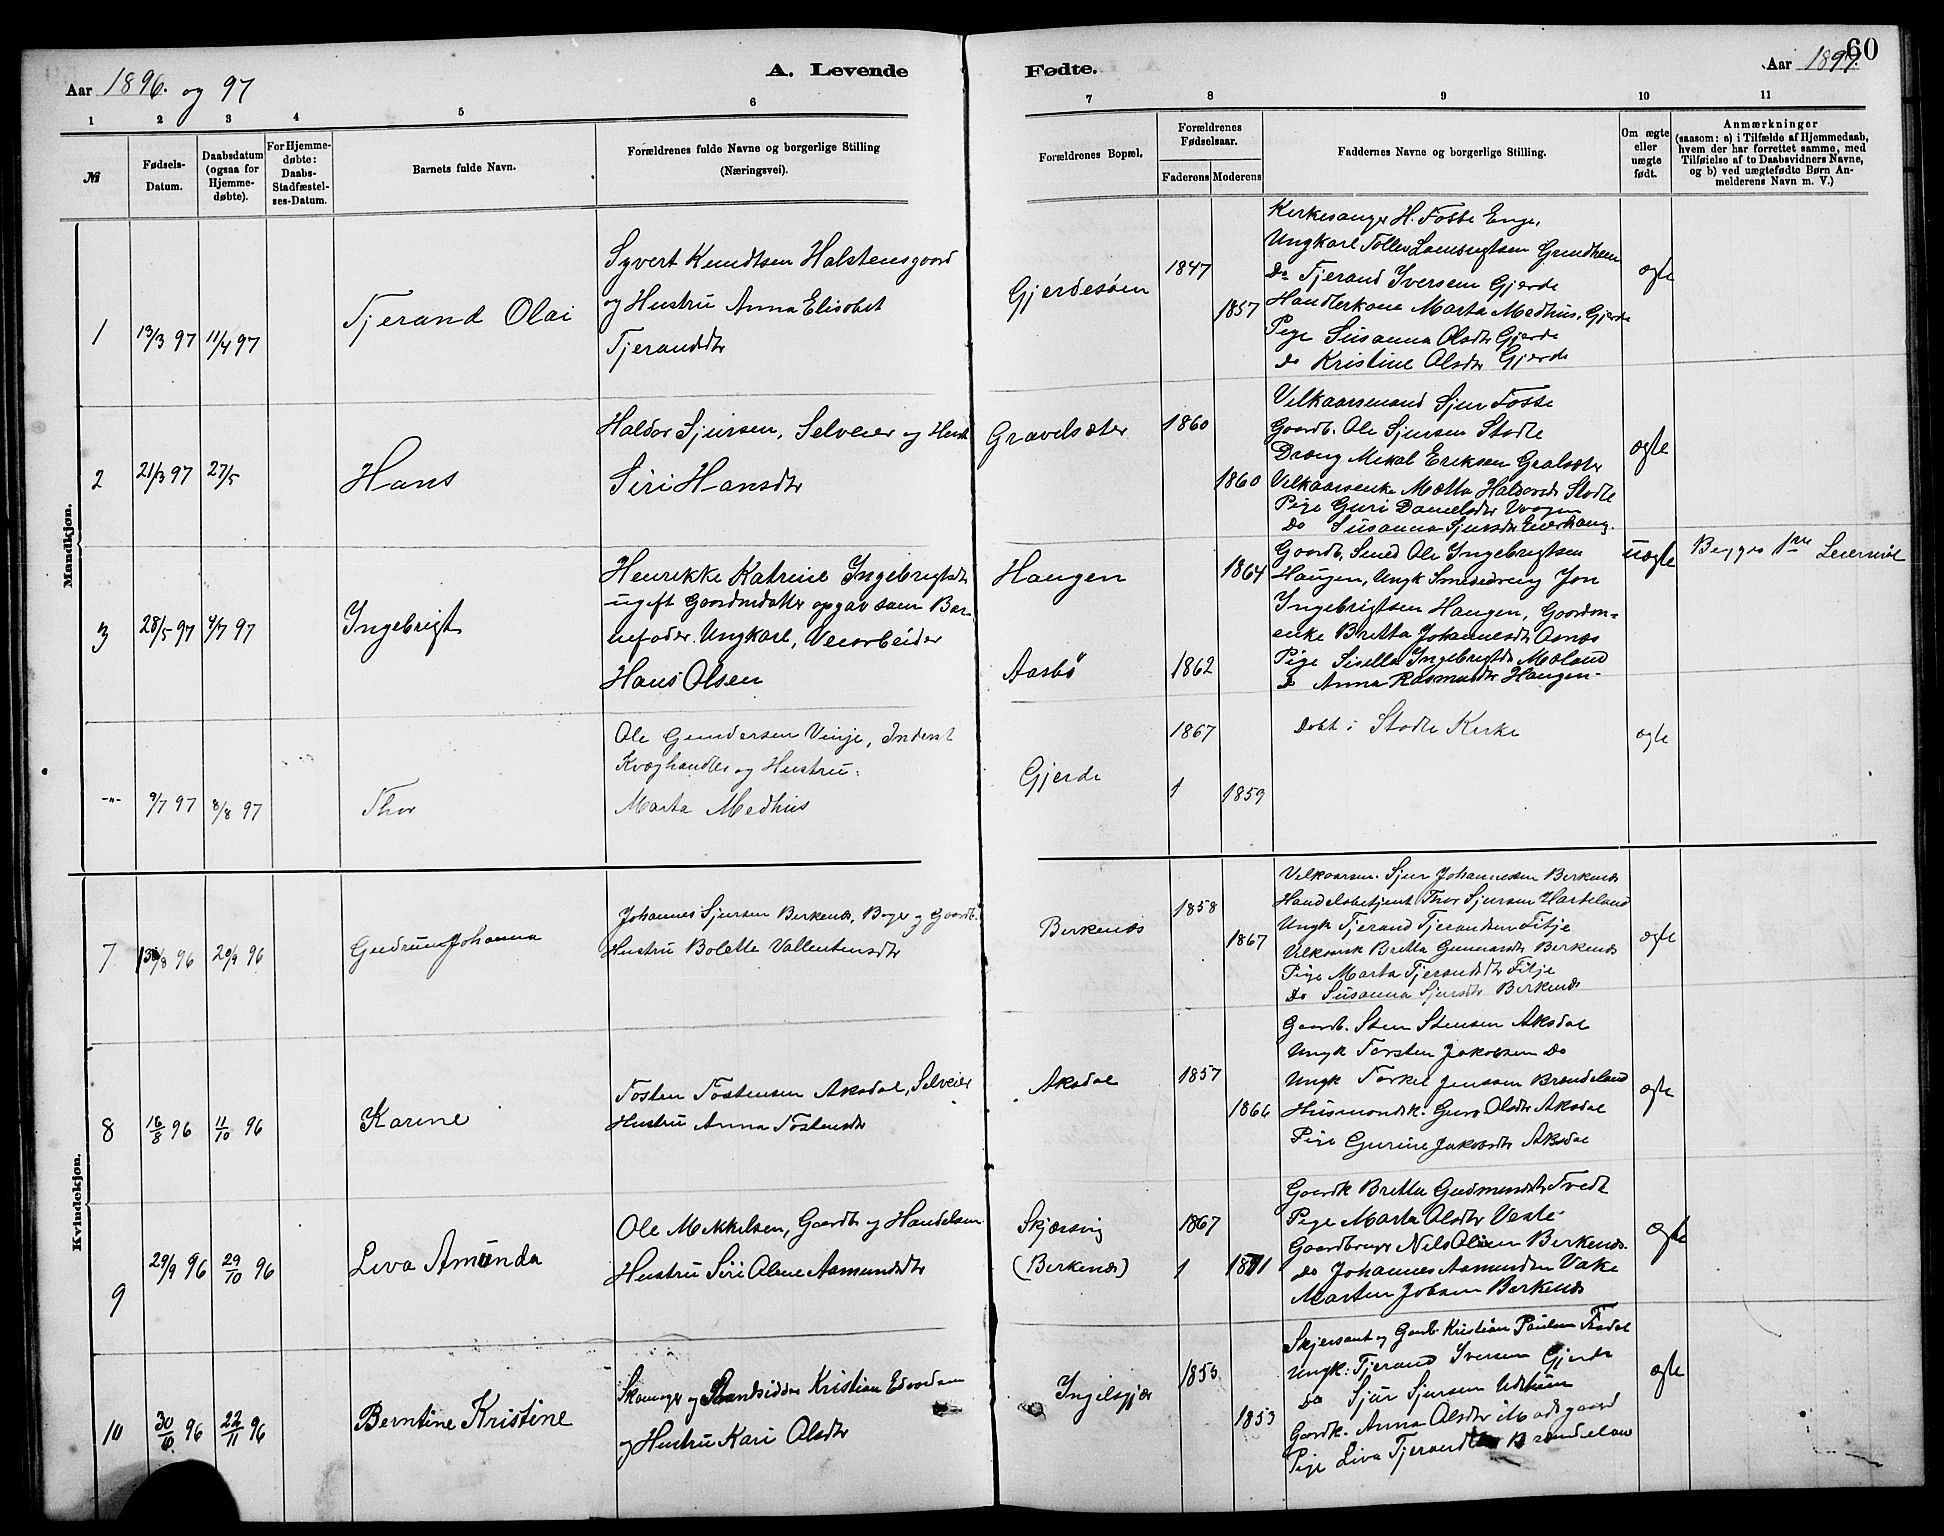 60
Aar 1896. og 97
A. Levende
Fødte.
Aar 1897.
1 2 3 4 5 6 7 8 9 10 11
№
Fødsels-
Datum.
Daabsdatum
(ogsaa for
Hjemme-
døbte).
For Hjemme-
døbte:
Daabs-
Stadfæstel-
ses-Datum.
Barnets fulde Navn.
Forældrenes fulde Navne og borgerlige Stilling
(Næringsvei).
Forældrenes Bopæl.
Forældrenes
Fødselsaar.
Faderens Moderens
Faddernes Navne og borgerlige Stilling.
Om ægte
eller
uægte
født.
Anmærkninger
(saasom: a) i Tilfælde af Hjemmedaab,
hvem der har forrettet samme, med
Tilføielse af to Daabsvidners Navne,
og b) ved uægtefødte Børn An-
melderens Navn m. V.)
Mandkjøn.
1
13/3 97
11/4 97
Tjerand Olai
Syvert Knudtsen Halstensgaard
og Hustru Anna Elisabet
Tjerandsdtr
Gjerdesøen
1847
1857
Kirkesanger H. Fosse Enge,
Ungkarl Tollev Lambregtsen Grindheim
Do Tjerand Iversen Gjerde
Handlerkone Marta Medhus, Gjerde
Pige Susanna Olsdtr Gjerde
Do Kristine Olsdtr Gjerde
ægte
2
21/3 97
27/5
Hans
Haldor Sjursen, Selveier og Hustr
Siri Hansdtr
Gravelsæter
1860
1860
Velkaarsmand Sjur Fosse
Gaardb. Ole Sjursen Stødle
Dreng Mikal Eriksen Gralsæter
Velkaarsenke Mætta Haldorsd Stødle
Pige Guri Danielsdtr Vaagen
Do Susanna Sjursdtr
ægte
3
28/5 97
4/7 97
Ingebrigt
Henrikke Katrine Ingebrigtsdtr
ugift Gaardmdatter opgav som Bar-
nefader. Ungkarl, Veiarbeider
Hans Olsen
Haugen
Aasbø
1864
1862
Gaardb. Smed Ole Ingebrigtsen
Haugen, Ungk Smededreng Jon
Ingebrigtsen Haugen, Gaardm-
enke Britta Johannesdtr Osnæs
Pige Sisella Ingebrigtsdtr Mæland
Do Anna Rasmusdtr Haugen-
uægte
Begges 1ste Leiermaal
-"-
9/7 97
8/8 97
Thor
Ole Gundersen Vinje, Inderst
Kvæghandler og Hustru:
Marta Medhus
Gjerde
1867
1859
Døbt i Stødle Kirke
ægte
Kvindekjøn.
7
13/8 96
20/9 96
Gudrun Johanna
Johannes Sjursen Berkenæs, Bager og Gaardb.
Hustru Bolette Vallentinsdtr
Berkenæs
1858
1867
Velkaarsm. Sjur Johannessen Berkenæs
Handelsbetjent Thor Sjursen Harteland
Ungk Tjerand Tjerandsen Fitje
Velkaarsk Britta Gunnarsdtr Berkenæs
Pige Marta Tjerandsdtr Fitje
Do Susanna Sjursdtr Berkenæs
ægte
8
16/8 96
11/10 96
Karine
Tosten Tostensen Aksdal, Selveier
Hustru Anna Tostensdtr
Aksdal
1857
1866
Gaardb. Sten Stensen Aksdal
Ungk Torsten Jakobsen Do
Ungk Torkel Jenssen Brendeland
Husmandsk. Guro Olsdtr Aksdal
Pige Gurine Jakobsdtr Aksdal
ægte
9
29/9 96
29/10 96
Liva Amunda
Ole Mikkelsen, Gaardb og Handelsm.
Hustru Siri Oline Aamundsdtr
Skjærsvig
(Berkenæs)
1867
1871
Gaardk Britta Gudmundsdtr Tvedt
Pige Marta Olsdtr Veste
Gaardbruger Nils Olsen Berkenæs.
Do Johannes Aamundsen Vake
Marten Jobsen Berkenæs
ægte
10
30/10 96
22/11 96
Berntine Kristine
Skomager og Strandsidder Kristian Edvardsen
og Hustru Kari Olsdtr
1853
1853
Skjersant og Gaardb Kristian Paulsen
Ungk: Tjerand Iversen Gjerde
Do Sjur Sjursen
Gaardk. Anna Olsdtr Madsgaard
Pige Liva Tjerandsdtr Brendeland
ægte